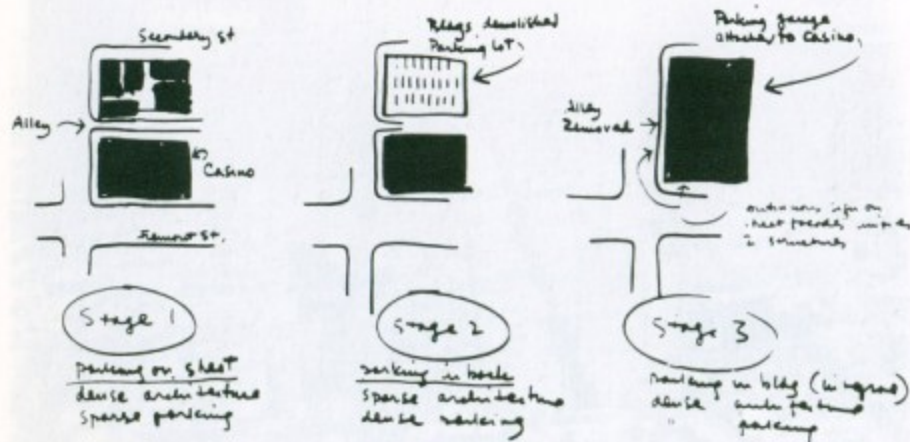 Secondary St
Alley
Casino
Fremont St.
Stage 1
parking on street
dense architecture
sparse parking
Bldgs demolished
Parking Lot
Stage 2
parking in back
sparse architecture
dense parking
Parking garage
attached to Casino
Alley
Removed
continuous sign on
street
2 structures
Stage 3
parking in bldg
dense architecture
parking